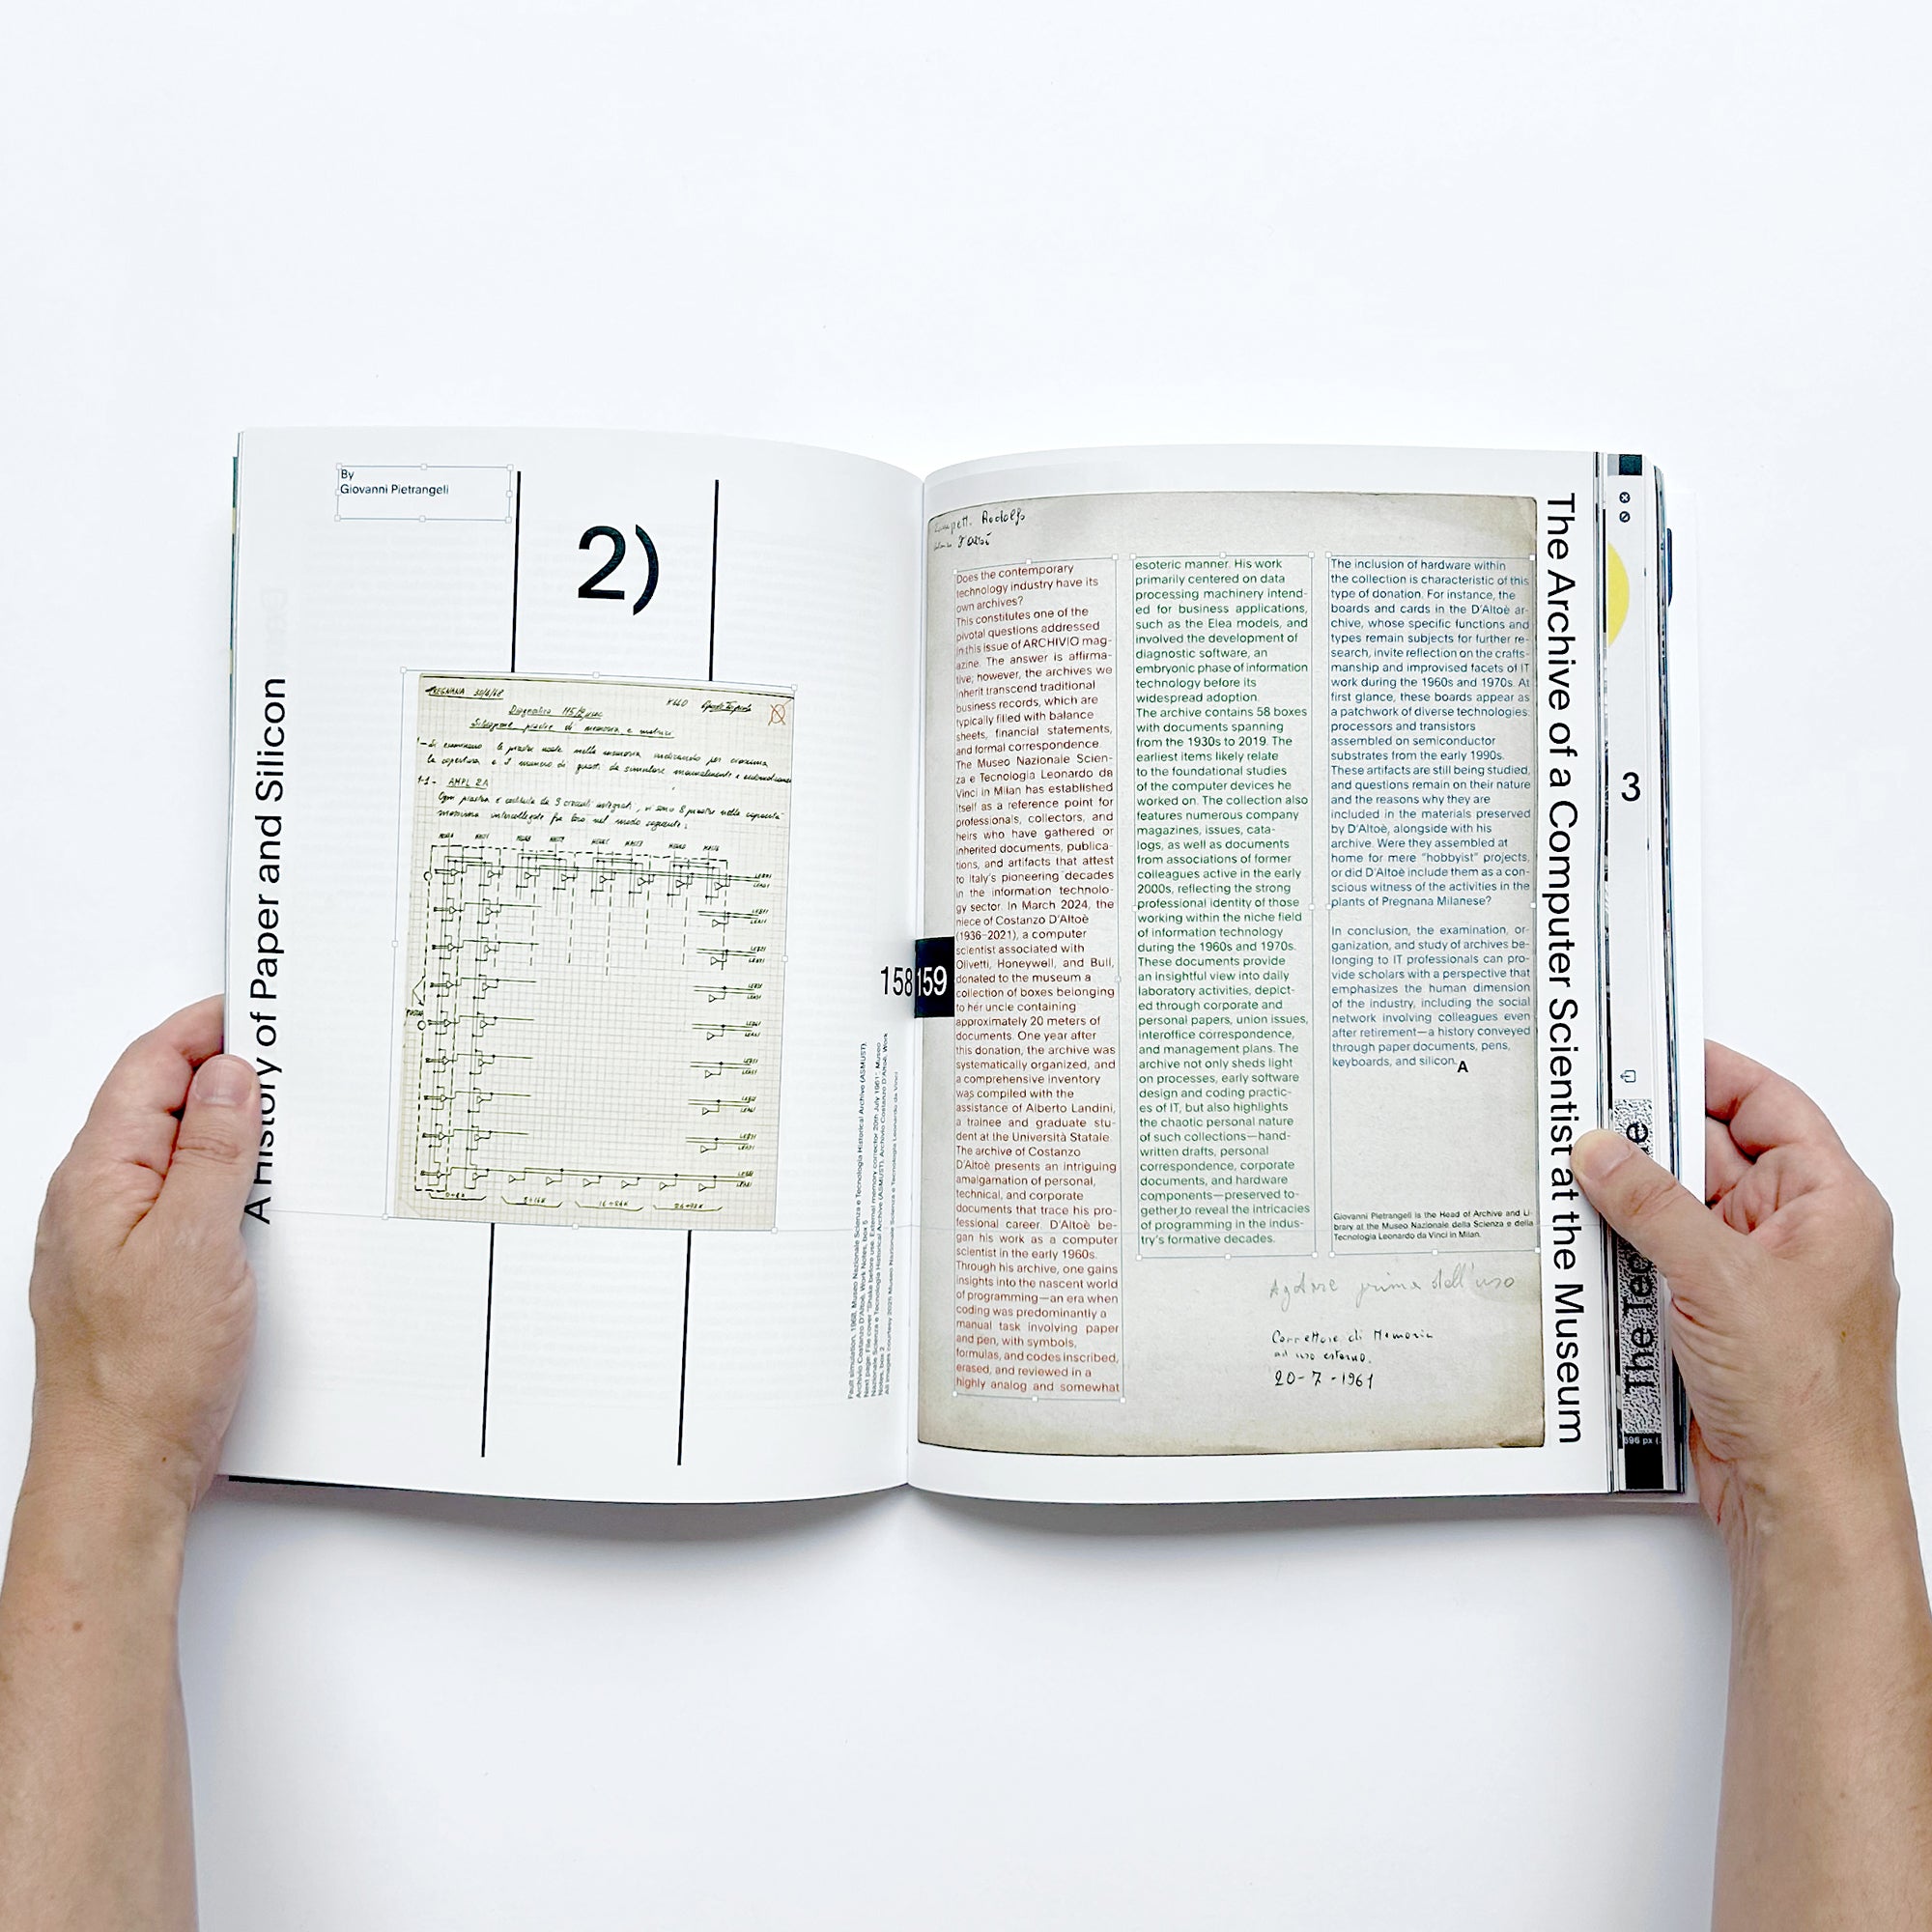 By
Giovanni Pietrangeli
2)
A History of Paper and Silicon
PREGNANA 30/4/68
Diagnostica 115/2
Simulazione piastre di memoria e
1-1- AMPL 2A
158
159
Fault simulation, 1968, Museo Nazionale Scienza e Tecnologia Historical Archive (ASMUST),
Archivio Costanzo D'Altoè, Work Notes, box 5
Next page: File cover "Shake before use. External memory corrector 20th July 1961", Museo
Nazionale Scienza e Tecnologia Historical Archive (ASMUST), Archivio Costanzo D'Altoè, Work
Notes, box 2
All images courtesy 2025 Museo Nazionale Scienza e Tecnologia Leonardo da Vinci
Rodolfo
Does the contemporary
technology industry have its
own archives?
This constitutes one of the
pivotal questions addressed
in this issue of ARCHIVIO mag-
azine. The answer is affirma-
tive; however, the archives we
inherit transcend traditional
business records, which are
typically filled with balance
sheets, financial statements,
and formal correspondence.
The Museo Nazionale Scien-
za e Tecnologia Leonardo da
Vinci in Milan has established
itself as a reference point for
professionals, collectors, and
heirs who have gathered or
inherited documents, publica-
tions, and artifacts that attest
to Italy's pioneering decades
in the information technolo-
gy sector. In March 2024, the
niece of Costanzo D'Altoè
(1936–2021), a computer
scientist associated with
Olivetti, Honeywell, and Bull,
donated to the museum a
collection of boxes belonging
to her uncle containing
approximately 20 meters of
documents. One year after
this donation, the archive was
systematically organized, and
a comprehensive inventory
was compiled with the
assistance of Alberto Landini,
a trainee and graduate stu-
dent at the Università Statale.
The archive of Costanzo
D'Altoè presents an intriguing
amalgamation of personal,
technical, and corporate
documents that trace his pro-
fessional career. D'Altoè be-
gan his work as a computer
scientist in the early 1960s.
Through his archive, one gains
insights into the nascent world
of programming—an era when
coding was predominantly a
manual task involving paper
and pen, with symbols,
formulas, and codes inscribed,
erased, and reviewed in a
highly analog and somewhat
esoteric manner. His work
primarily centered on data
processing machinery intend-
ed for business applications,
such as the Elea models, and
involved the development of
diagnostic software, an
embryonic phase of information
technology before its
widespread adoption.
The archive contains 58 boxes
with documents spanning
from the 1930s to 2019. The
earliest items likely relate
to the foundational studies
of the computer devices he
worked on. The collection also
features numerous company
magazines, issues, cata-
logs, as well as documents
from associations of former
colleagues active in the early
2000s, reflecting the strong
professional identity of those
working within the niche field
of information technology
during the 1960s and 1970s.
These documents provide
an insightful view into daily
laboratory activities, depict-
ed through corporate and
personal papers, union issues,
interoffice correspondence,
and management plans. The
archive not only sheds light
on processes, early software
design and coding practic-
es of IT, but also highlights
the chaotic personal nature
of such collections—hand-
written drafts, personal
correspondence, corporate
documents, and hardware
components—preserved to-
gether to reveal the intricacies
of programming in the indus-
try's formative decades.
The inclusion of hardware within
the collection is characteristic of this
type of donation. For instance, the
boards and cards in the D'Altoè ar-
chive, whose specific functions and
types remain subjects for further re-
search, invite reflection on the crafts-
manship and improvised facets of IT
work during the 1960s and 1970s. At
first glance, these boards appear as
a patchwork of diverse technologies:
processors and transistors
assembled on semiconductor
substrates from the early 1990s.
These artifacts are still being studied,
and questions remain on their nature
and the reasons why they are
included in the materials preserved
by D'Altoè, alongside with his
archive. Were they assembled at
home for mere "hobbyist" projects,
or did D'Altoè include them as a con-
scious witness of the activities in the
plants of Pregnana Milanese?
In conclusion, the examination, or-
ganization, and study of archives be-
longing to IT professionals can pro-
vide scholars with a perspective that
emphasizes the human dimension
of the industry, including the social
network involving colleagues even
after retirement—a history conveyed
through paper documents, pens,
keyboards, and silicon. A
Giovanni Pietrangeli is the Head of Archive and Li-
brary at the Museo Nazionale della Scienza e della
Tecnologia Leonardo da Vinci in Milan.
Agitare prima dell'uso
Correttore di Memoria
ad uso esterno.
20-7-1961
The Archive of a Computer Scientist at the Museum
3
The Tec
596 px (